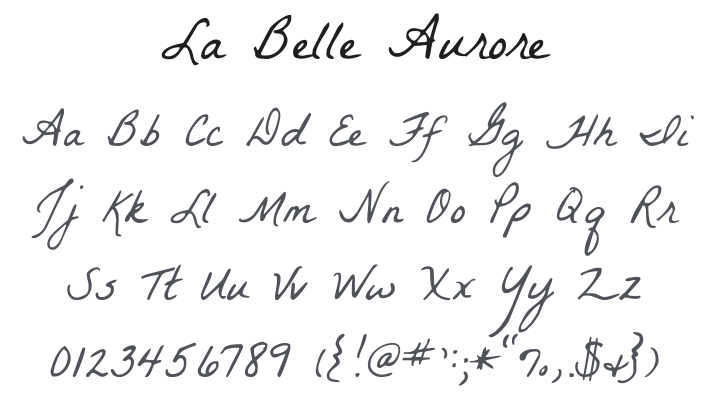 La Belle Aurore
Aa Bb Cc Dd Ee Ff Gg Hh Ii
Jj Kk Ll Mm Nn Oo Pp Qq Rr
Ss Tt Uu Vv Ww Xx Yy Zz
0123456789 ({!@#':;*“%,.$&})